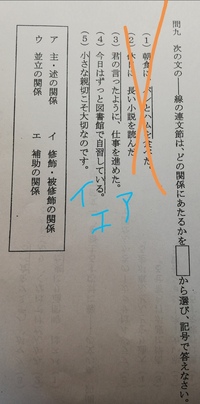 問九 次の文の――線の連文節は、どの関係にあたるかを□から選び、記号で答えなさい。
(1) 朝食に、パンとハムを食べた。
(2) 休日に 長い小説を読んだ
(3) 君の言ったように、仕事を進めた。
(4) 今日はずっと図書館で自習している。
(5) 小さな親切こそ大切なのです。
ア 主・述の関係 イ 修飾・被修飾の関係
ウ 並立の関係 エ 補助の関係
イ
エ
ア